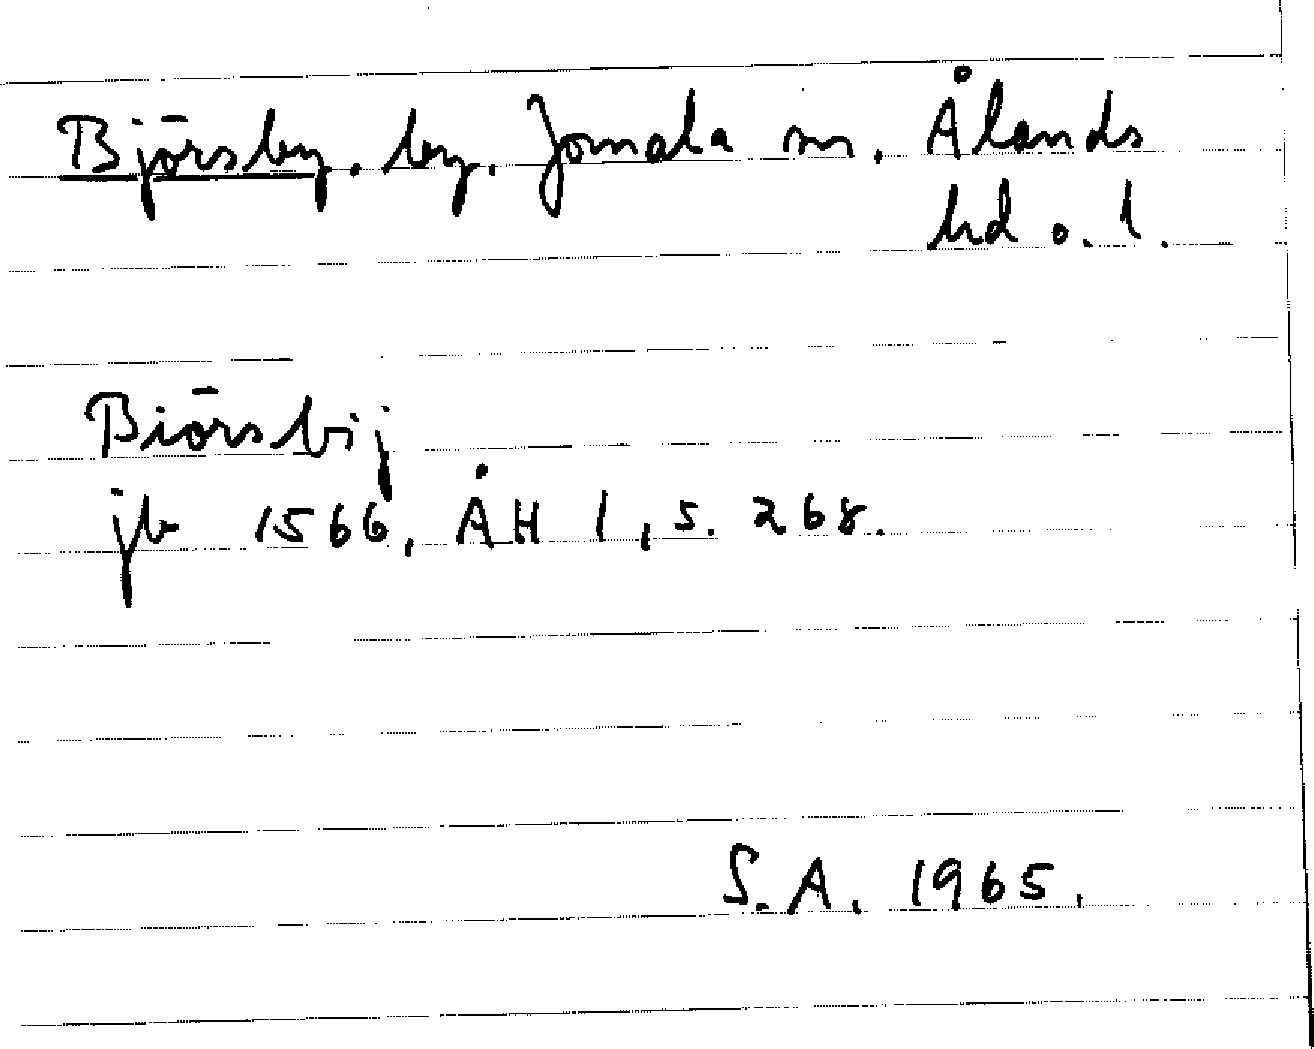 Björsby. by. Jomala sn. Ålands
hd o. l.
Biörsbij
jb 1566, ÅH 1, s. 268.
S.A. 1965.